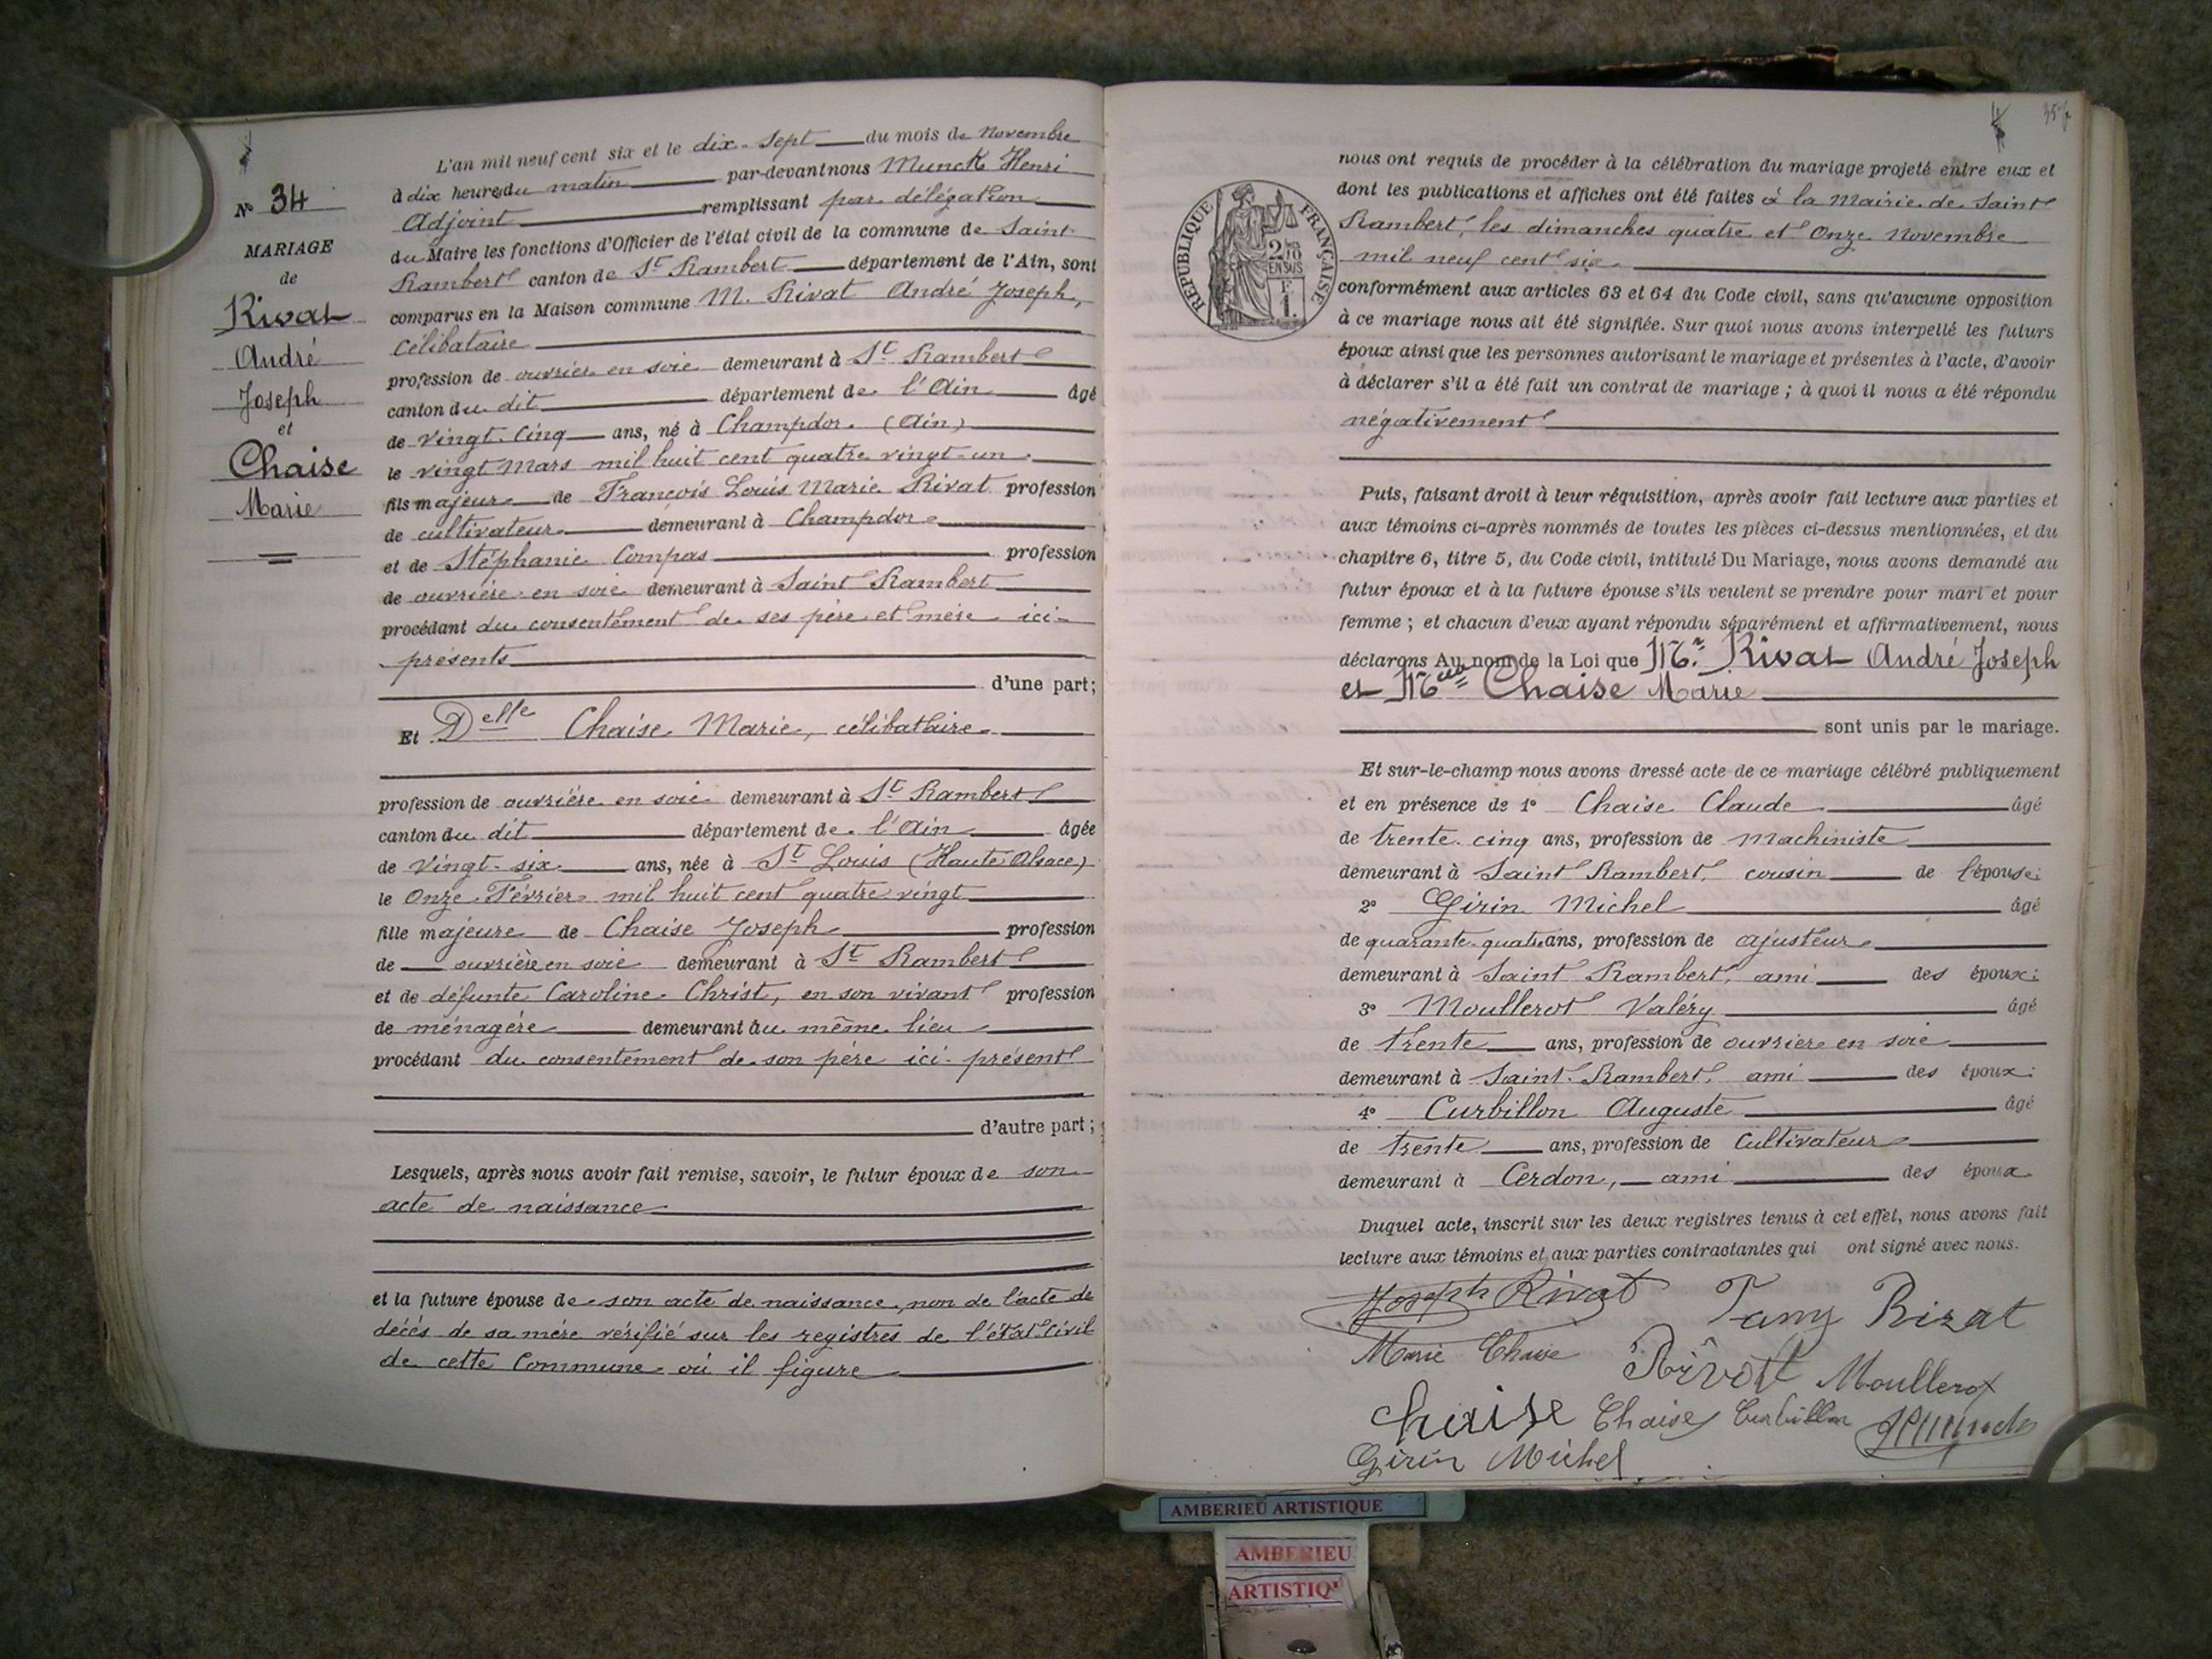 N° 34
MARIAGE
de
Rivat
André
Joseph
et
Chaise
Marie
L'an mil neuf cent six et le dix-sept du mois de Novembre
à dix heures du matin par-devant nous Munck Henri
Adjoint remplissant par délégation
du Maire les fonctions d'Officier de l'état civil de la commune de Saint
Rambert canton de St Rambert département de l'Ain, sont
comparus en la Maison commune M. Rivat André Joseph,
célibataire
profession de ouvrier en soie demeurant à St Rambert
canton du dit département de l'Ain âgé
de vingt-cinq ans, né à Champdor (Ain)
le vingt Mars mil huit cent quatre vingt-un
fils majeur de François Louis Marie Rivat profession
de cultivateur demeurant à Champdor
et de Stéphanie Compas profession
de ouvrière en soie demeurant à Saint Rambert
procédant du consentement de ses père et mère ici-
présents
d'une part;
Et Delle Chaise Marie, célibataire
profession de ouvrière en soie demeurant à St Rambert
canton du dit département de l'Ain âgée
de vingt-six ans, née à St Louis (Haute Alsace)
le onze Février mil huit cent quatre vingt
fille majeure de Chaise Joseph profession
de ouvrière en soie demeurant à St Rambert
et de défunte Caroline Christ, en son vivant profession
de ménagère demeurant au même lieu
procédant du consentement de son père ici-présent
d'autre part;
Lesquels, après nous avoir fait remise, savoir, le futur époux de son
acte de naissance
et la future épouse de son acte de naissance, non de l'acte de
décés de sa mère vérifié sur les registres de l'état civil
de cette Commune où il figure
357
RÉPUBLIQUE FRANÇAISE
2/10 EN SUS
F
1.
nous ont requis de procéder à la célébration du mariage projeté entre eux et
dont les publications et affiches ont été faites à la Mairie de Saint
Rambert, les dimanches quatre et onze Novembre
mil neuf cent six
conformément aux articles 63 et 64 du Code civil, sans qu'aucune opposition
à ce mariage nous ait été signifiée. Sur quoi nous avons interpellé les futurs
époux ainsi que les personnes autorisant le mariage et présentes à l'acte, d'avoir
à déclarer s'il a été fait un contrat de mariage; à quoi il nous a été répondu
négativement
Puis, faisant droit à leur réquisition, après avoir fait lecture aux parties et
aux témoins ci-après nommés de toutes les pièces ci-dessus mentionnées, et du
chapitre 6, titre 5, du Code civil, intitulé Du Mariage, nous avons demandé au
futur époux et à la future épouse s'ils veulent se prendre pour mari et pour
femme; et chacun d'eux ayant répondu séparément et affirmativement, nous
déclarons Au nom de la Loi que Mr. Rivat André Joseph
et Melle Chaise Marie
sont unis par le mariage.
Et sur-le-champ nous avons dressé acte de ce mariage célébré publiquement
et en présence de 1° Chaise Claude âgé
de trente cinq ans, profession de machiniste
demeurant à Saint Rambert, cousin de l'épouse;
2° Girin Michel âgé
de quarante-quatre ans, profession de ajusteur
demeurant à Saint Rambert, ami des époux;
3° Moullerot Valéry âgé
de trente ans, profession de ouvrier en soie
demeurant à Saint-Rambert, ami des époux;
4° Curbillon Auguste âgé
de trente ans, profession de cultivateur
demeurant à Cerdon, ami des époux
Duquel acte, inscrit sur les deux registres tenus à cet effet, nous avons fait
lecture aux témoins et aux parties contractantes qui ont signé avec nous.
Joseph Rivat Fany Rizat
Marie Chaise Rivat Moullerot
Chaise Chaise Curbillon HMunck
Girin Michel
AMBERIEU ARTISTIQUE
AMBERIEU
ARTISTIQ